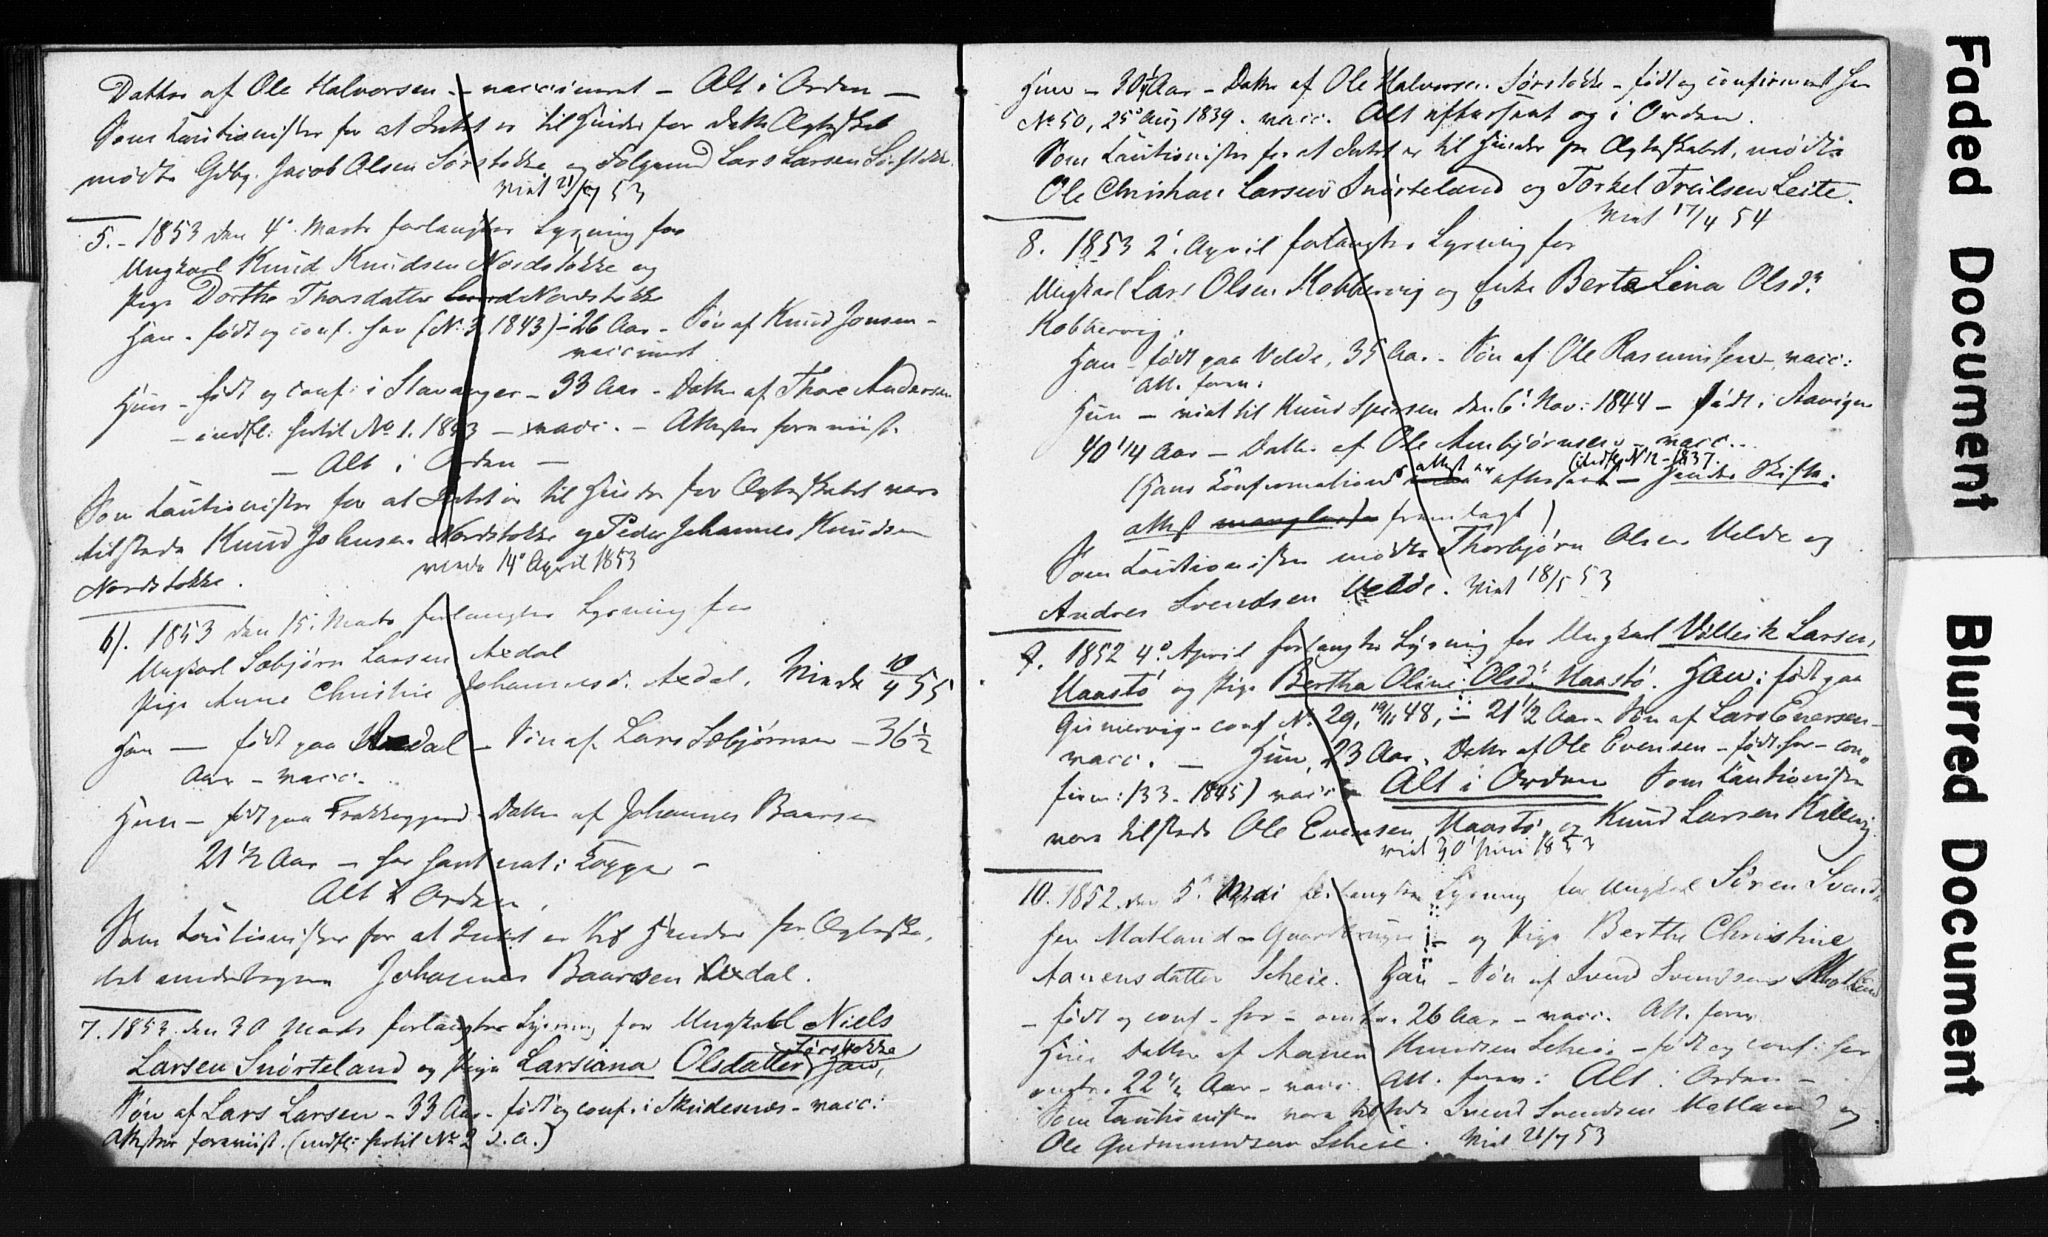 Datter af Ole Halvorsen - vaccineret - Alt i Orden -
Som Cautionister for at Intet er til Hinder for dette Ægteskab
mødte Gdbg. Jacob Olsen Sørstokke og Folgemd Lars Larsen
Viet 21/7 53
5. - 1853 den 4. Marts forlangtes Lysning for
Ungkarl Knud Knudsen Nordstokke og
Pige Dorthe Thorsdatter Nordstokke
Han - født og conf. her (N. 3, 1843) - 26 Aar - Søn af Knud Jonsen -
vaccineret
Hun - født og conf. i Stavanger - 33 Aar - Datter af Thore Andersen
- indfl: hertil No 1. 1853 - vacc. - Attester foreviist.
- Alt i Orden -
Som Cautionister for at Intet er til Hinder for Ægteskabet vare
tilstede Knud Johnsen Nordstokke og Peder Johannes Knudsen
Nordstokke.
viede 14de April 1853
6). 1853 den 15. Marts forlangtes Lysning for
Ungkarl Sæbjørn Larsen Axdal
Pige Anne Christine Johannesd. Axdal. Viede 10/4 55
Han - født paa Axdal - Søn af Lars Sæbjørnsen - 36 1/2
Aar - vacc.
Hun - født paa - Datter af Johannes Baarsen
21 1/2 Aar - har havt nat: Kopper -
Alt i Orden.
Som Cautionister for at Intet er til Hinder for Ægteska-
bet undertegne Johannes Baarsen Axdal.
7. 1853 den 30 Marts forlangtes Lysning for Ungkarl Niels
Larsen Snørteland og Pige Larsiana Olsdatter Sørstokke Han,
Søn af Lars Larsen - 33 Aar - født og conf. i Skudesnæs - vacc:
Attester foreviist. (indfl: hertil No 2 d. A.)
Hun - 30 1/4 Aar - Datter af Ole Halvorsen Sørstokke - født og confirmeret her
No 50, 25 Aug 1839. vacc. Alt efterseet og i Orden.
Som Cautionister for at Intet er til Hinder for Ægteskabet, mødte
Ole Christian Larsen Snørteland og Torkel Truilsen Leite.
Viet 17/4 54
8. 1853 2. April forlangtes Lysning for
Ungkarl Lars Olsen Kobbervig og Enke Berte Lina Olsdr
Kobbervig.
Han - født paa Velde, 35 Aar - Søn af Ole Rasmussen - vacc:
Att. forev.
Hun - viet til Knud Sjursen den 6. Nov: 1844 - født i Aavigen
40 1/4 Aar - Datter af Ole Aanbjørnsen - vacc.
(indfl. N 12 - 1837.
(Hans Confirmations attest er efterseet - Hendes Skifte-
attest manglede fremlagt)
Som Cautionister mødte Thorbjørn Olsen Velde og
Andres Svendsen Velde. Viet 18/5 53
9. 1852 4. April forlangtes Lysning for Ungkarl Villeik Larsen,
Naastø og Pige Bertha Oline Olsdr Naastø. Han: født paa
Gunnervig - conf N. 29, 19/11 48, - 21 1/2 Aar - Søn af Lars Eversen -
vacc. - Hun, 23 Aar. Datter af Ole Evensen - født her - con-
firm: (33 - 1845) vacc - Alt i Orden Som Cautionister
vare tilstede Ole Evensen Naastø og Knud Larsen Kallevig
viet 30 Juni 1853
10. 1852. den 5. Mai forlangtes Lysning for Ungkarl Søren Svend-
sen Matland - Gaardbruger - og Pige Berthe Christine
Aanensdatter Scheie. Han - Søn af Svend Svendsen Matland
- født og conf - her - omtr. 26 Aar - vacc. Att. forev.
Hun Datter af Aanen Knudsen Scheie - født og conf. her
omtr. 22 1/2 Aar - vacc. Att. forev: Alt i Orden -
Som Cautionister vare tilstede Svend Svendsen Matland og
Ole Gudmundsen Scheie. Viet 21/7 53
Faded Document
Blurred Document